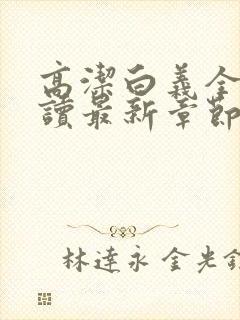 高潔白義全
讀最新章節
林達永 金光鉉